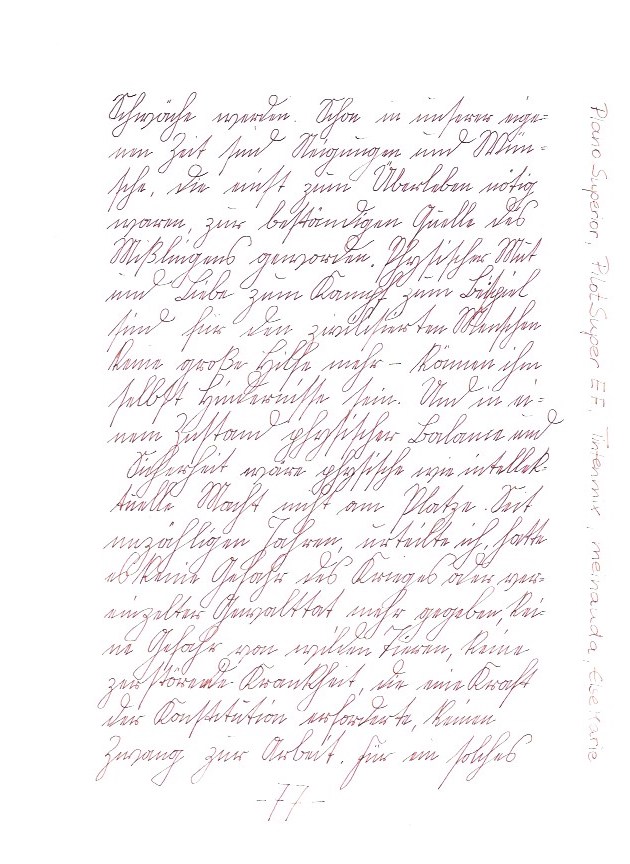 Schwäche werden. Schon in unserer eige-
nen Zeit sind Neigungen und Wün-
sche, die einst zum Überleben nötig
waren, zur beständigen Quelle des
Mißlingens geworden. Physischer Mut
und Liebe zum Kampf zum Beispiel
sind für den zivilisierten Menschen
keine große Hilfe mehr – können ihm
selbst Hindernisse sein. Und in ei-
nem Zustand physischer Balance und
Sicherheit wäre physische wie intellek-
tuelle Macht nicht am Platze. Seit
unzähligen Jahren, urteilte ich, hatte
es keine Gefahr des Krieges oder ver-
einzelter Gewalttat mehr gegeben, kei-
ne Gefahr von wilden Tieren, keine
zerstörende Krankheit, die eine Kraft
der Konstitution erforderte, keinen
Zwang zur Arbeit. Für ein solches
-77-
Plano Superior, Pilot Super EF, Tintenmix, meinauda, Else Marie